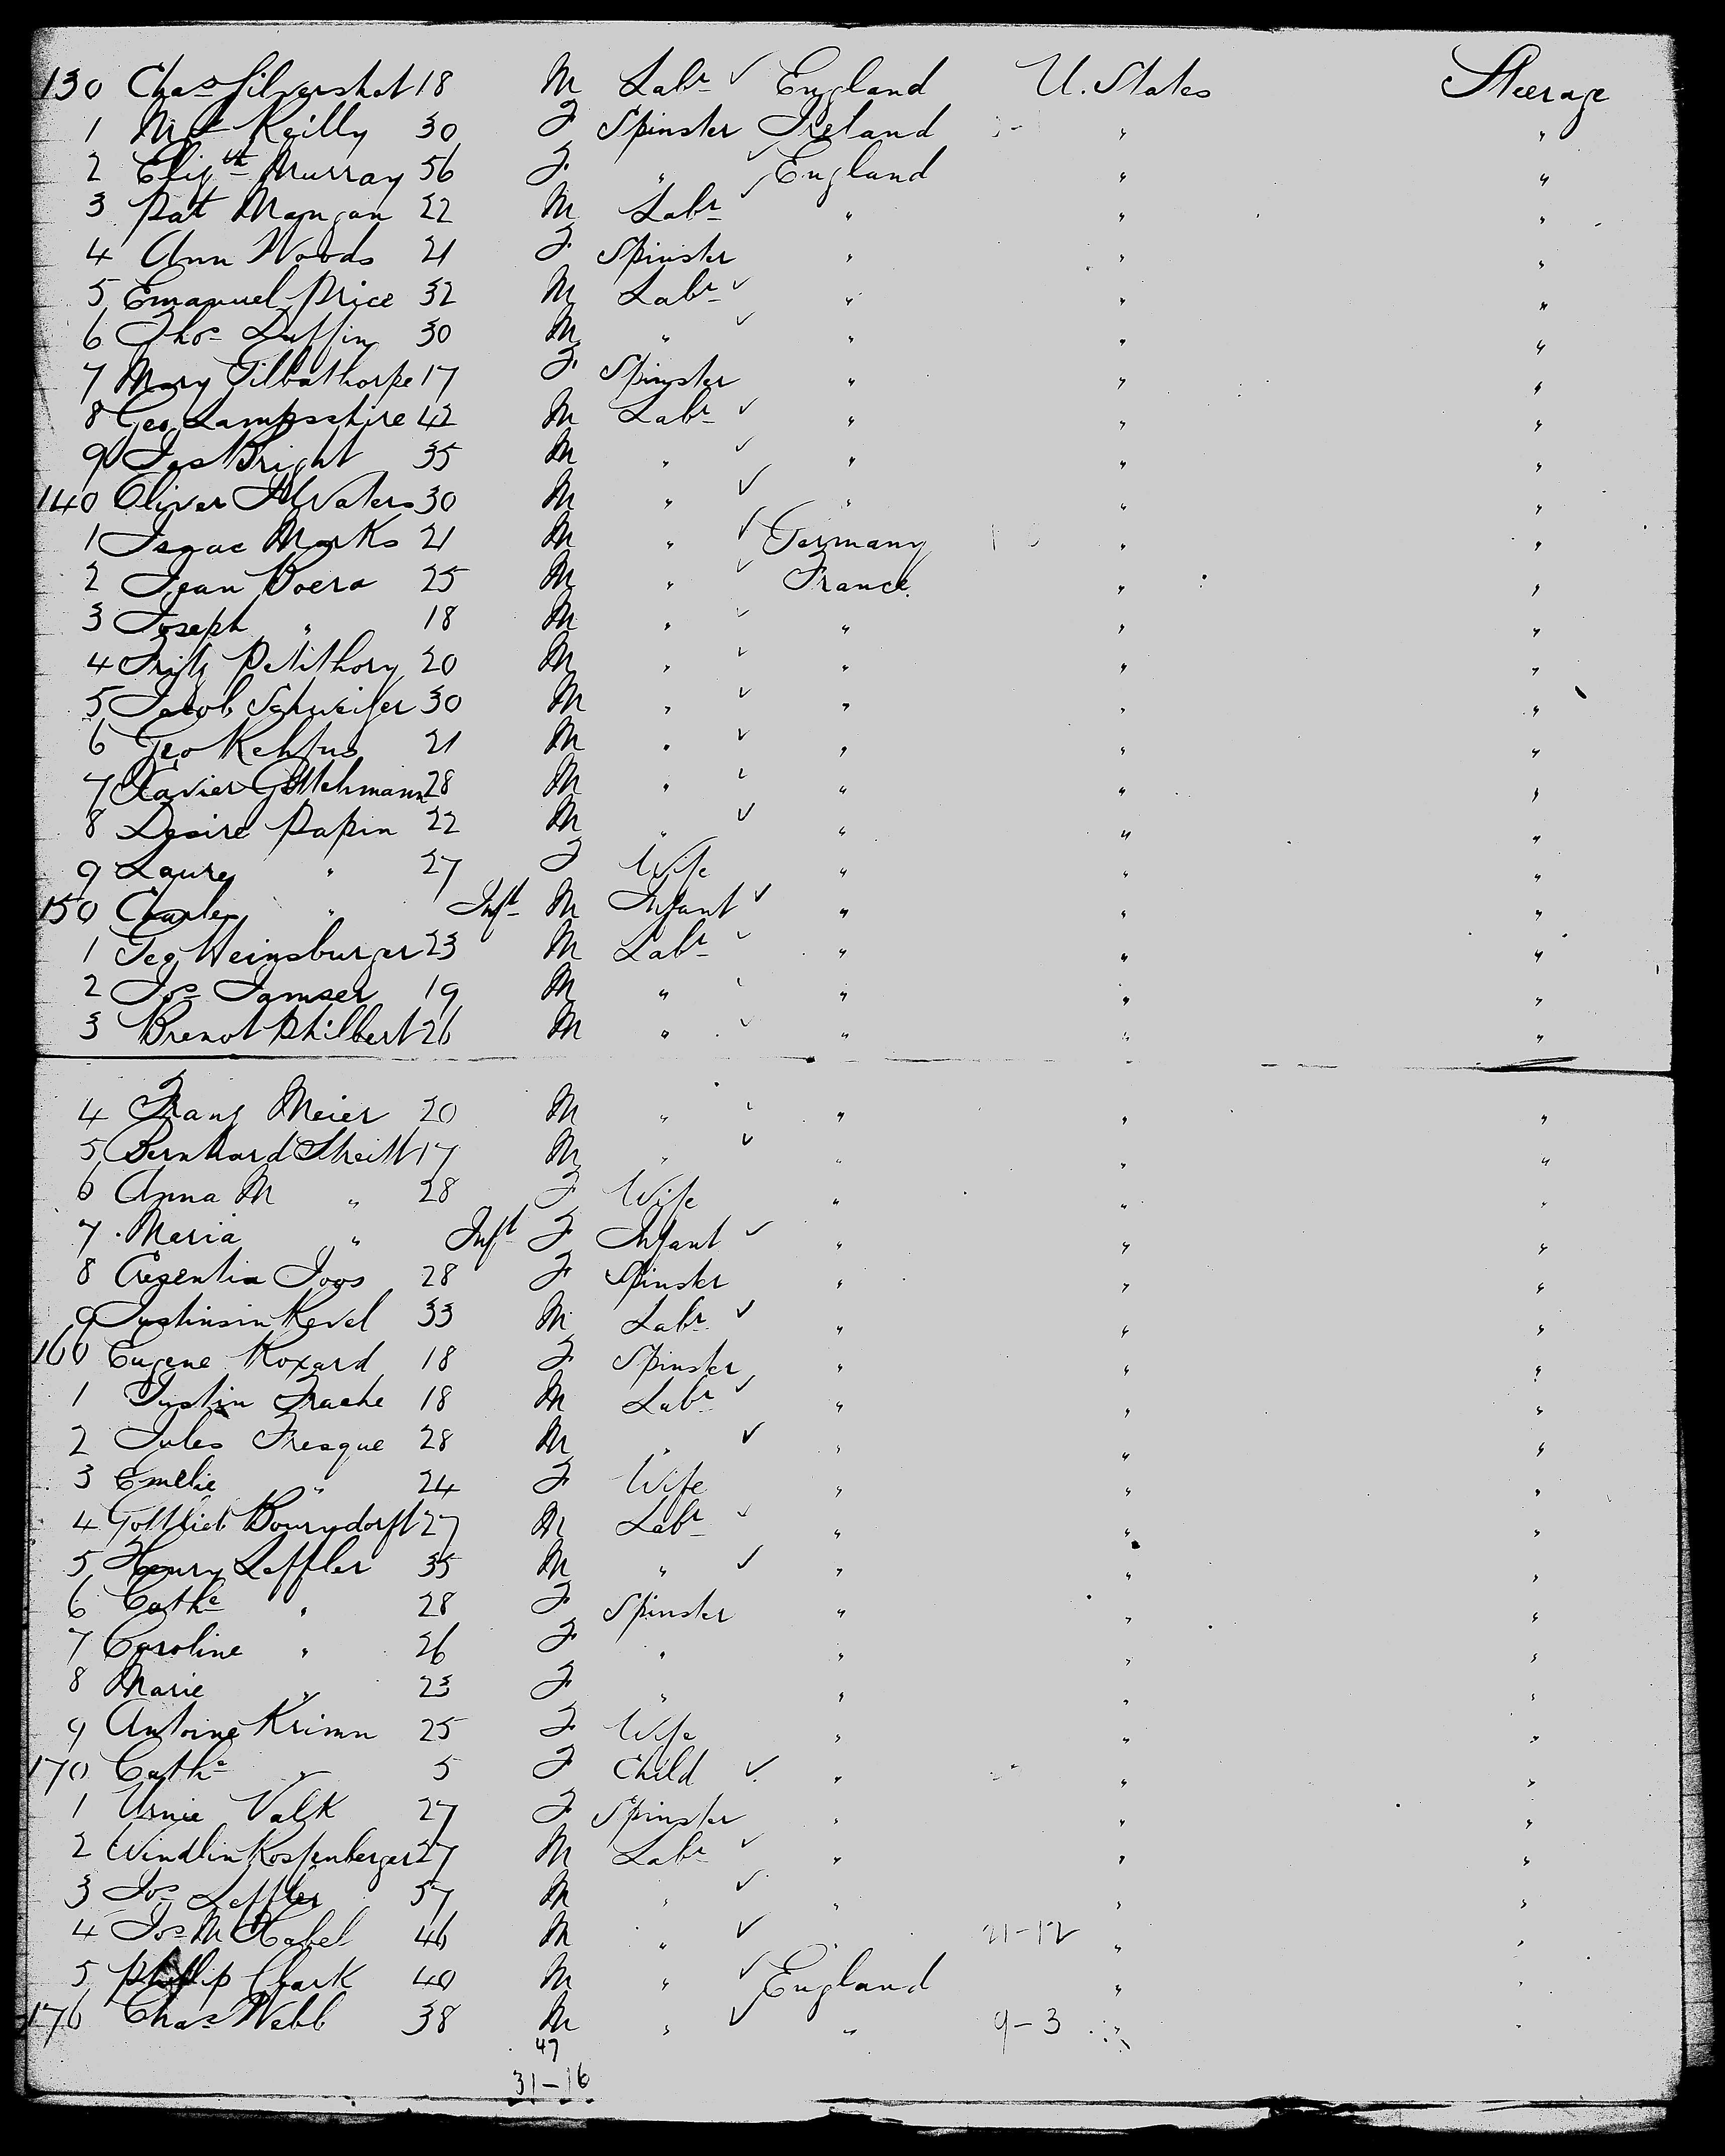 130 Chas Silvershot 18 M Labr ✓ England U. States Steerage
1 Mt Reilly 30 F Spinster Ireland " "
2 Elizth Murray 56 F " ✓ England " "
3 Pat Mangan 22 M Labr ✓ " " "
4 Ann Woods 21 F Spinster " " "
5 Emanuel Price 32 M Labr ✓ " " "
6 Thos Duffin 30 M " ✓ " " "
7 Mary Gilbathorpe 17 F Spinster " " "
8 Geo Lampsshire 42 M Labr ✓ " " "
9 Jas Bright 35 M " ✓ " " "
140 Oliver Waters 30 M " ✓ " " "
1 Isaac Marks 21 M " ✓ Germany " "
2 Jean Boera 25 M " ✓ France " "
3 Joseph " 18 M " ✓ " " "
4 Fritz Petithory 20 M " ✓ " " "
5 Jacob Schweifer 30 M " ✓ " " "
6 Geo Kehfus 21 M " ✓ " " "
7 Xavier Guttehmann 28 M " ✓ " " "
8 Desire Papin 22 M " ✓ " " "
9 Laure " 27 F Wife " " "
150 Charles " Inft M Infant ✓ " " "
1 Geo Weinsburger 23 M Labr ✓ " " "
2 Jos Jamser 19 M " ✓ " " "
3 Brenot Philbert 26 M " ✓ " " "
4 Franz Meier 20 M " ✓ " " "
5 Bernhard Streitt 17 M " ✓ " " "
6 Anna M " 28 F Wife " " "
7 Maria " Inft F Infant ✓ " " "
8 Cresentia Joos 28 F Spinster " " "
9 Justinsin Revel 33 M Labr ✓ " " "
160 Eugene Roxard 18 F Spinster " " "
1 Justin Frache 18 M Labr ✓ " " "
2 Jules Fresque 28 M " ✓ " " "
3 Emelie " 24 F Wife " " "
4 Gottlieb Bourndorft 27 M Labr ✓ " " "
5 Henry Leffler 35 M " ✓ " " "
6 Cathe " 28 F Spinster " " "
7 Caroline " 26 F " " " "
8 Marie " 23 F " " " "
9 Antoine Krimn 25 F Wife " " "
170 Cathe " 5 F Child ✓ " " "
1 Urnie Valk 27 F Spinster " " "
2 Windlin Rosfenberger 27 M Labr ✓ " " "
3 Jos Leffler 57 M " ✓ " " "
4 Jos M Habel 46 M " ✓ " 21-12 " "
5 Phillip Chark 40 M " ✓ England " "
176 Chas Webb 38 M " ✓ " 9-3 " "
47
31-16